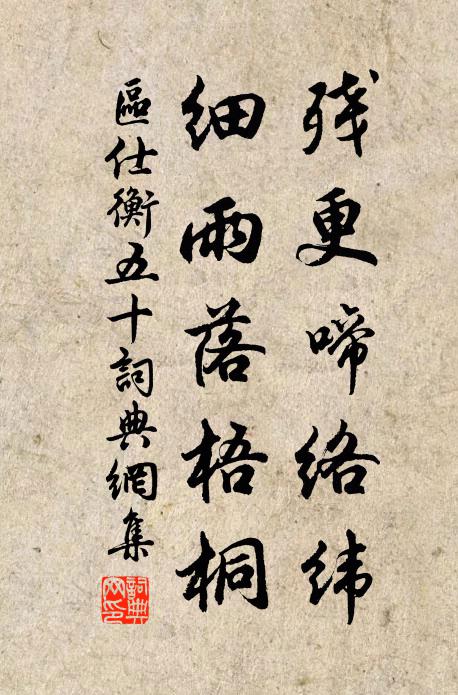 残更啼络纬
细雨落梧桐
區仕衡五十詞典網集
詞典网印